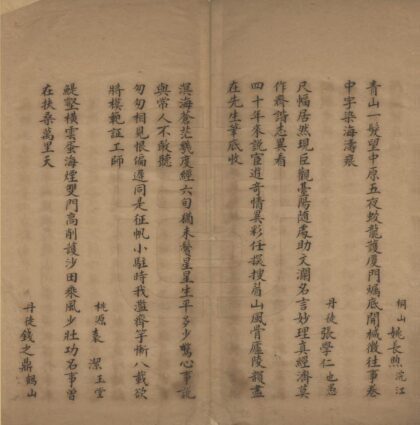 桐山 姚長煦 浣江
青山一髮望中原五夜蛟龍護廈門蠣底開緘徵往事卷
中字染海濤痕
丹徒 張學仁也愚
尺幅居然現巨觀臺陽隨處助文瀾名言妙理真經濟莫
作齊諧志異看
四十年來説宦遊奇情異彩任探搜眉山風骨廬陵韻盡
在先生筆底收
溟海蒼茫幾度經六旬猶未鬢星星生平多少驚心事説
與常人不敢聽
匆匆相見恨偏遲同是征帆小駐時我濫齊竽慚八載欲
將模範証工師
桃源 袁潔玉堂
鯤壑橫雲蜃海煙雙門高削護沙田乘風少壯功名事曾
在扶桑萬里天
丹徒 錢之鼎鶴山